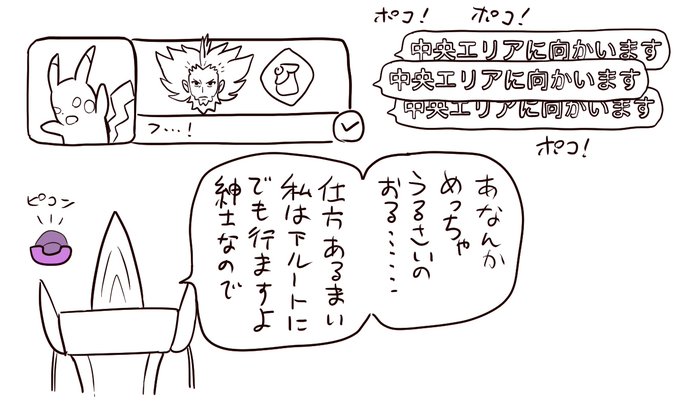 ポコ!
ポコ!
中央エリアに向かいます
中央エリアに向かいます
中央エリアに向かいます
ポコ!
フ…!
あなんか
めっちゃ
うるさいの
おる……………
仕方あるまい
私は下ルートに
でも行ますよ
紳士なので
ピコン